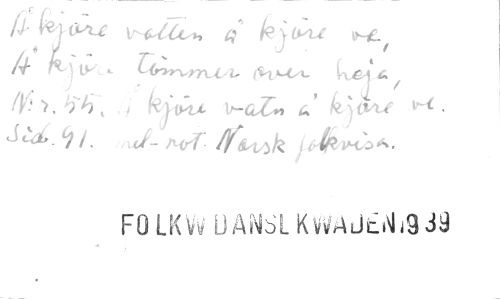 Å kjöre vatten å kjöre ve,
Å kjöre tömmer over heja,
N:r. 55. Å kjöre vatn å kjöre ve.
Sid. 91. mel-not. Norsk folkvisa.
FOLKW DANSLKWADEN 1939